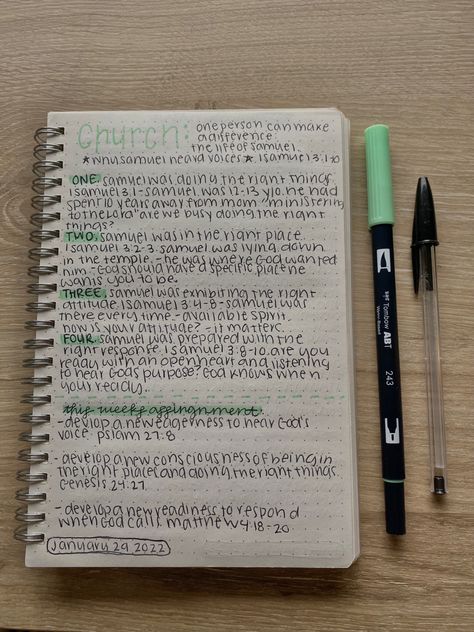 Church: one person can make
a difference:
the life of samuel.
★ why samuel heard voices ★ 1 samuel 3:1-10
ONE. samuel was doing the right things
1 samuel 3:1 - samuel was 12-13 y/o. he had
spent 10 years away from mom "ministering
to the Lord" are we busy doing the right
things?
TWO. samuel was in the right place.
1 samuel 3:2-3. samuel was lying down
in the temple. - he was where God wanted
him. - God should have a specific place he
wants you to be.
THREE. samuel was exhibiting the right
attitude. 1 samuel 3:4-8 - samuel was
there every time. - available spirit.
how is your attitude? - it matters.
FOUR. samuel was prepared with the
right response. 1 samuel 3:8-10. are you
ready with an open heart and listening
to hear God's purpose? God knows when
your ready.
this weeks assingnment
- devlop a new eagerness to hear God's
voice. pslam 27:8
- develop a new consciousness of being in
the right place and doing the right things.
Genesis 24:27.
- develop a new readiness to respond
when God calls. matthew 4:18-20
January 29 2022
Tombow ABT
243